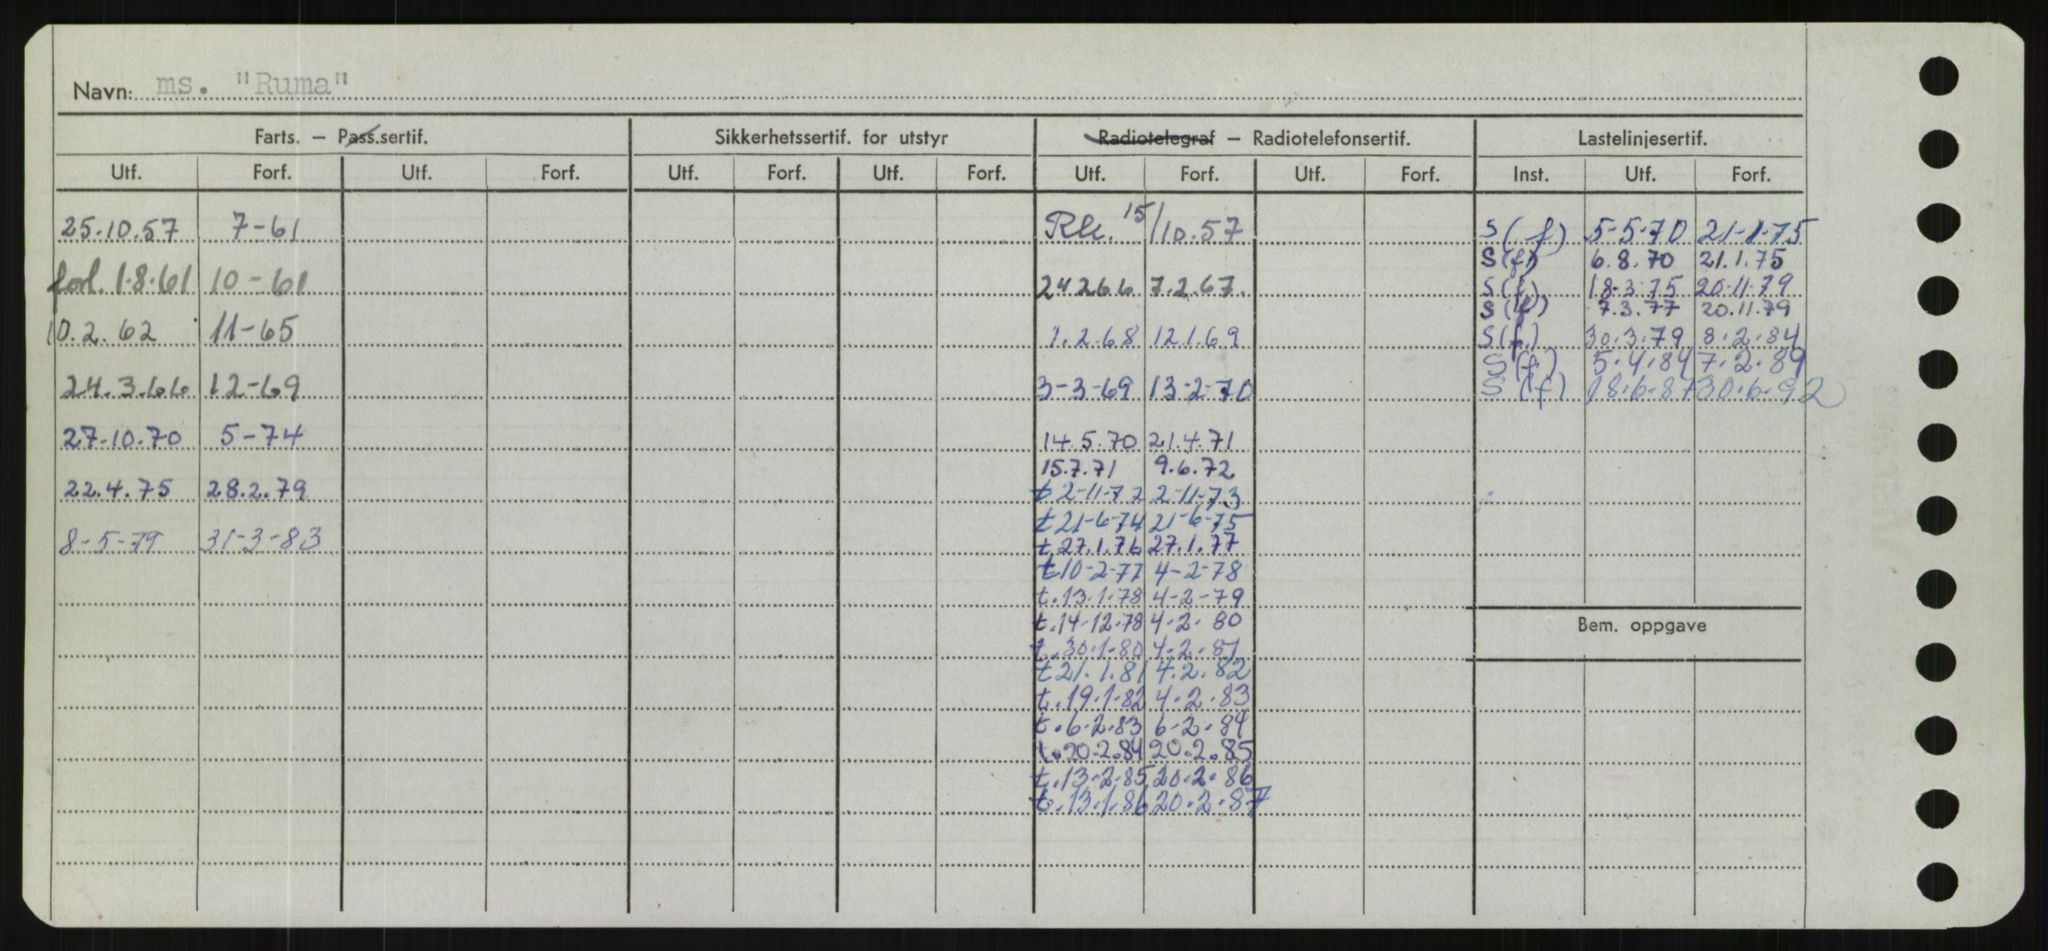 Navn: ms. "Ruma"
Farts. — Pass.sertif. Sikkerhetssertif. for utstyr Radiotelegraf — Radiotelefonsertif. Lastelinjesertif.
Utf. Forf. Utf. Forf. Utf. Forf. Utf. Forf. Utf. Forf. Utf. Forf. Inst. Utf. Forf.
25.10.57 7-61
forl. 1.8.61 10-61
10.2.62 11-65
24.3.66 12-69
27.10.70 5-74
22.4.75 28.2.79
8-5-79 31-3-83
15/10.57
24 2 66 7.2.67.
1.2.68 12.1.69
3-3-69 13-2-70
14.5.70 21.4.71
15.7.71 9.6.72
t 2-11-72 2-11-73
t 21-6-74 21-6-75
t 27.1.76 27.1.77
t 10-2-77 4-2-78
t. 13.1.78 4-2-79
t. 14-12-78 4-2-80
t. 30-1-80 4-2-81
t 21.1.81 4.2.82
t. 19-1-82 4-2-83
t. 6-2-83 6-2-84
t. 20-2.84 20.2.85
t. 13-2-85 20-2-86
t. 13.1.86 20-2-87
S (f) 5-5-70 21-1-75
S (f) 6.8.70 21.1.75
S (f) 18-3.75 20-11-79
S (f) 7.3.77 20.11.79
S (f.) 30.3.79 8.2.84
S (f) 5.4.84 7.2.89
S (f) 18.6.87 30.6.92
Bem. oppgave